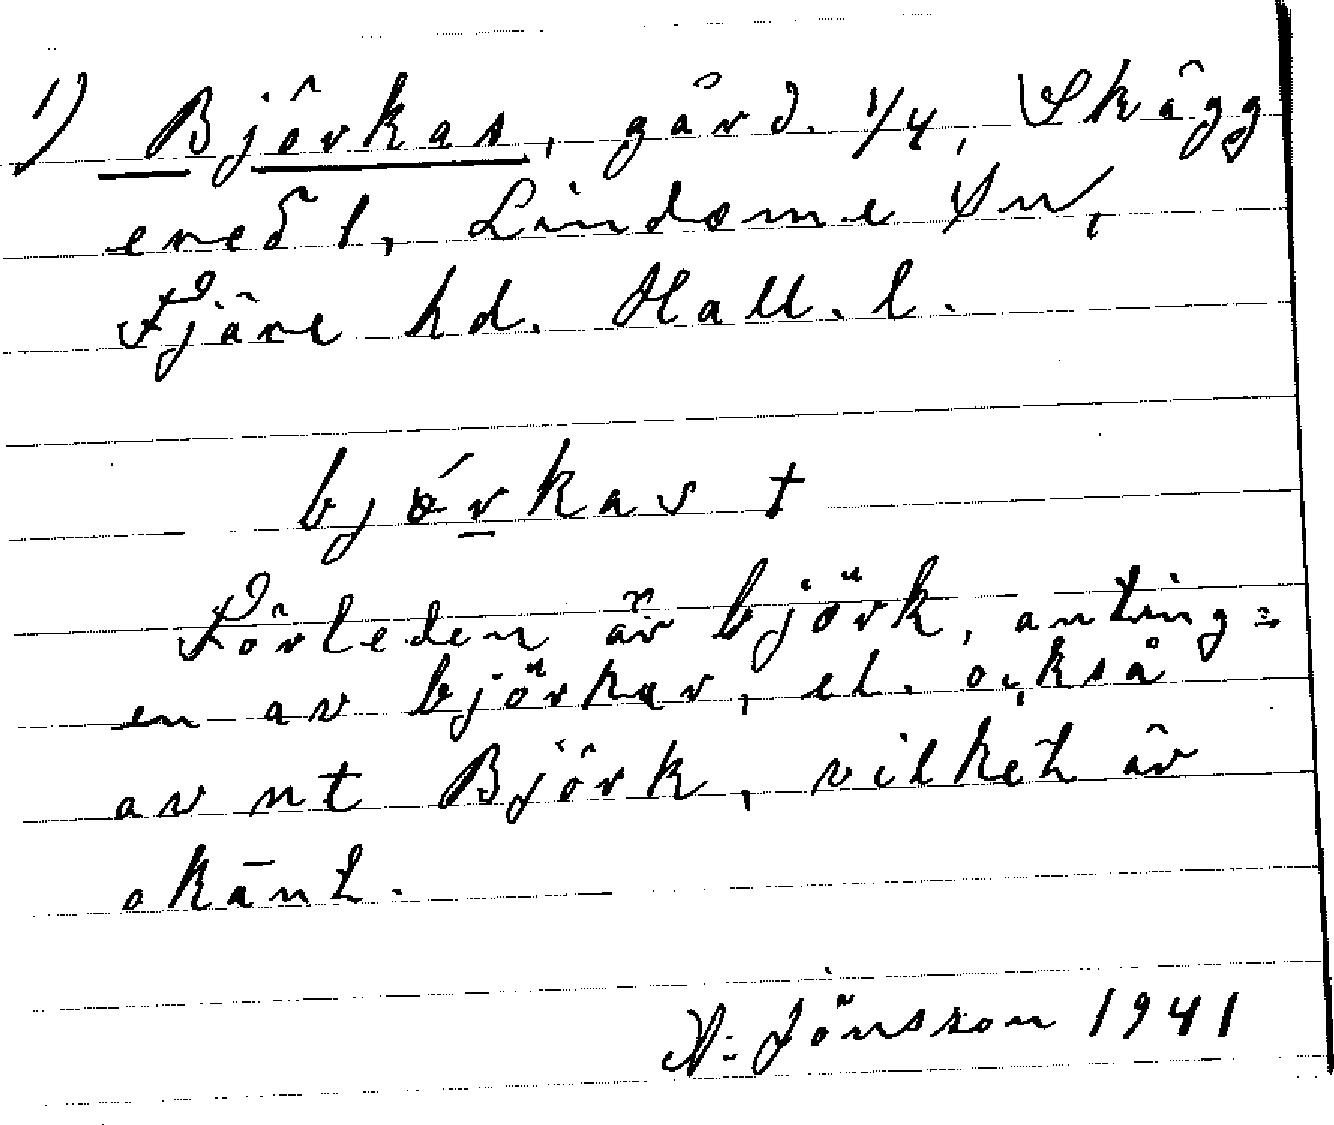 1) Björkas, gård. 1/4, Skägg
ered 1, Lindome Sn,
Fjäre hd. Hall. l.
bjǿrkas t
Förleden är björk, anting=
en av björkar, el. också
av nt Björk, vilket är
okänt.
N: Jönsson 1941